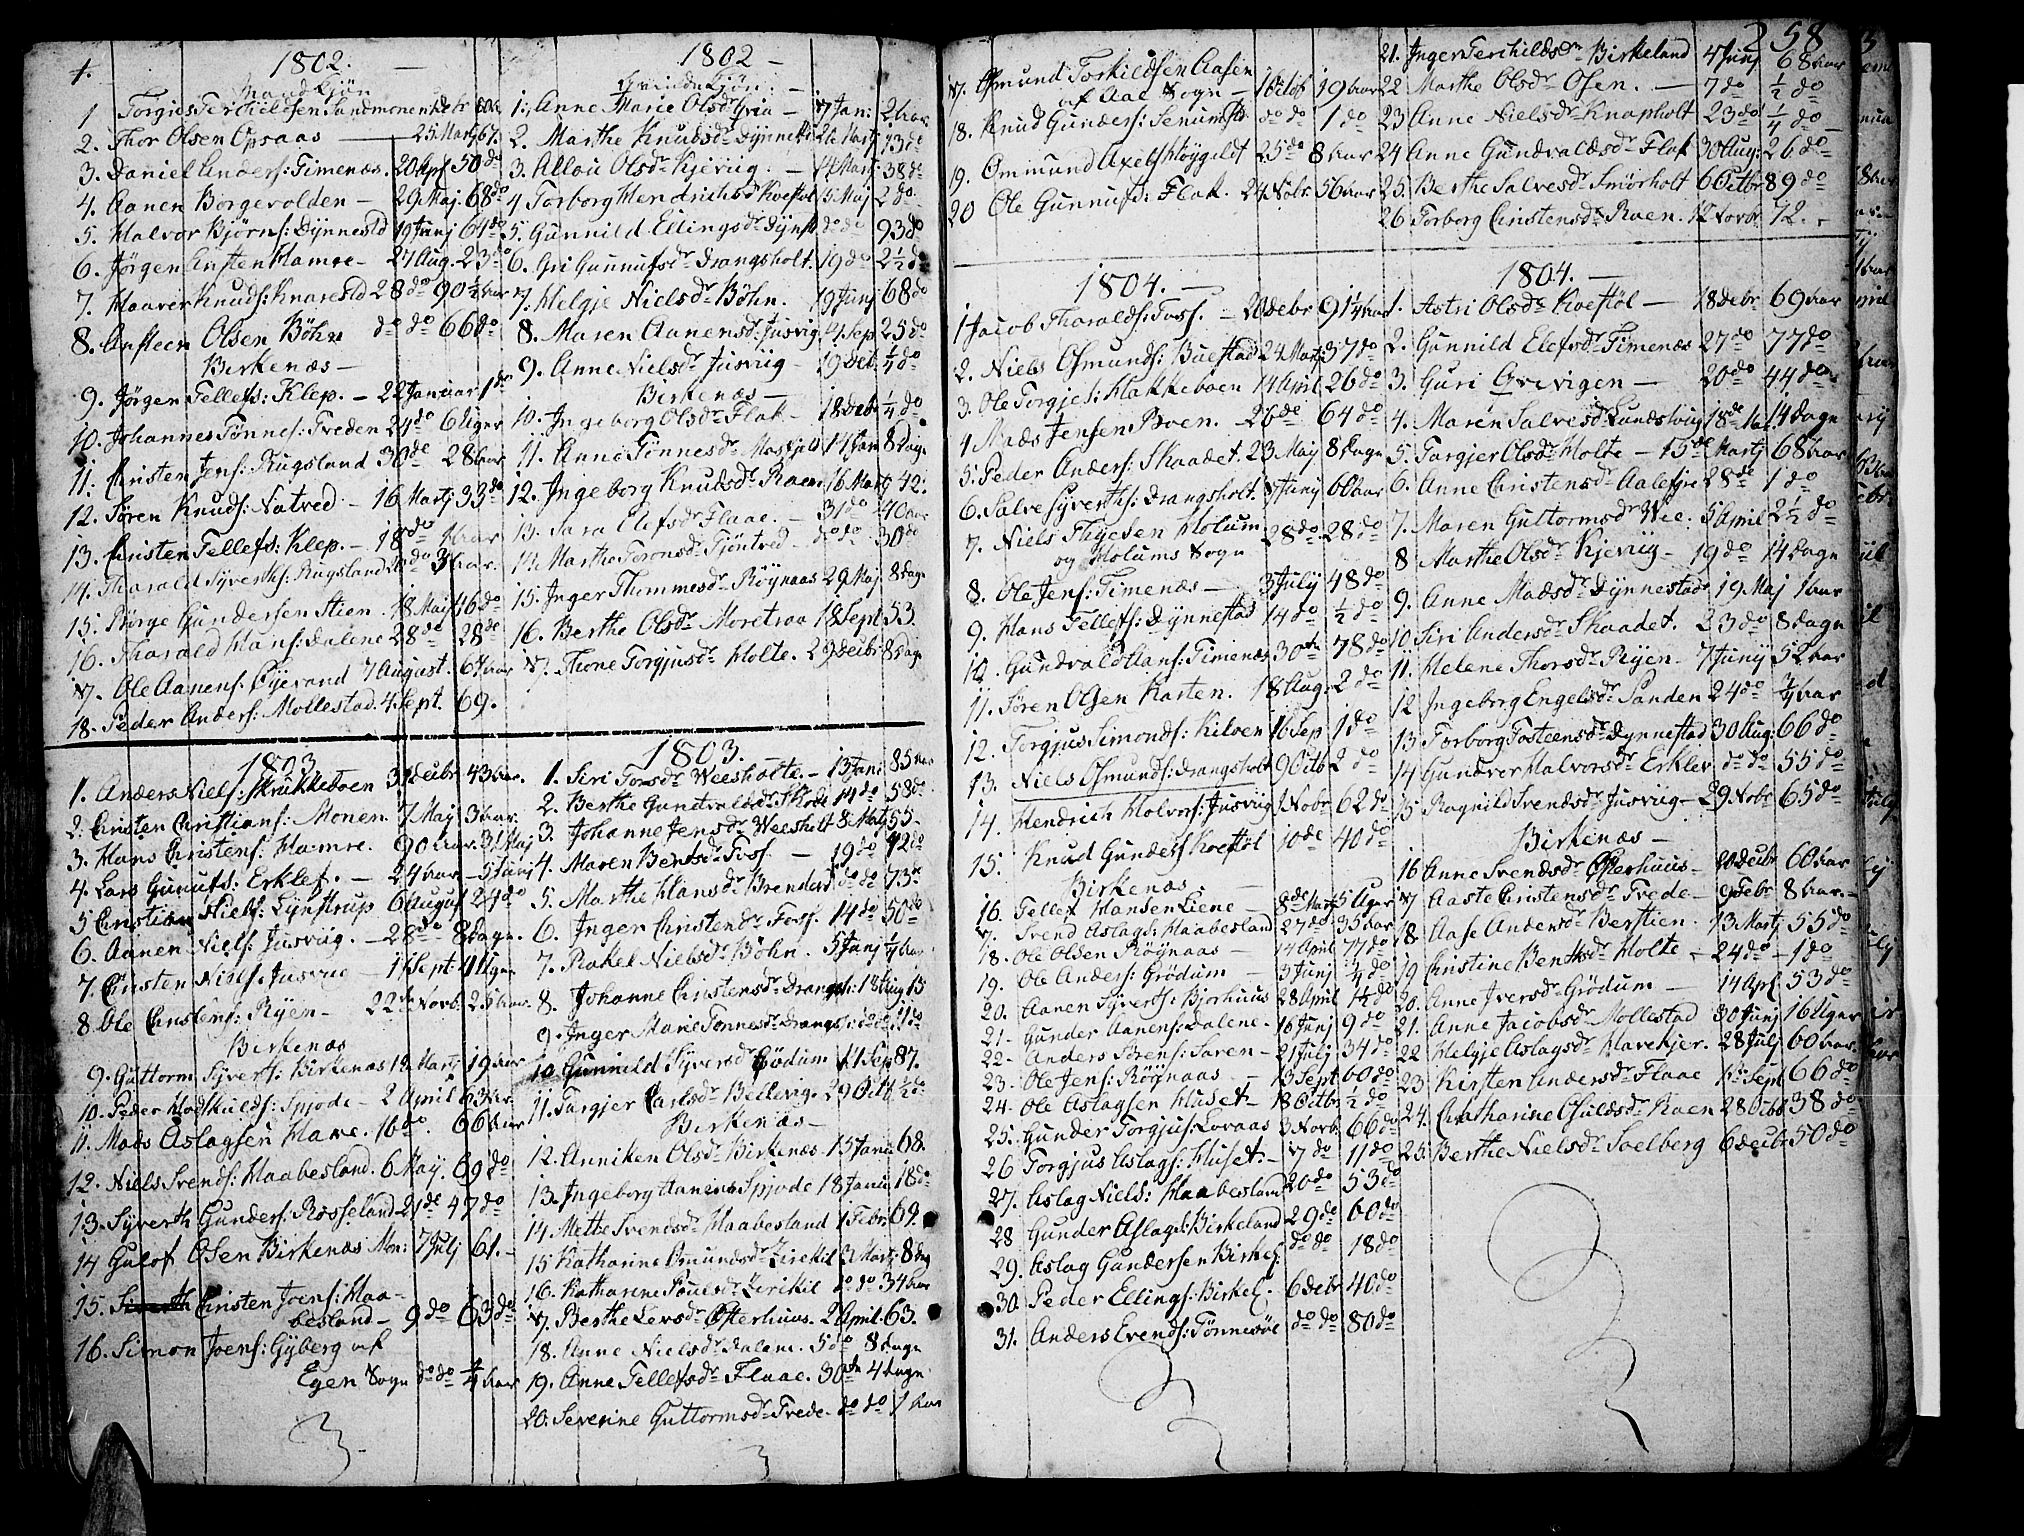 1802.
Mandkjøn
1 Torgies Terchelsen Sandmonen
2. Thor Olsen Opsaas — 25 Martj 67.
3. Daniel Anders: Timenæs. 20 Apl 50 do
4. Aanen Borgevolden — 29 Maj. 68 do
5. Halvor Bjørns: Dynnestd 19 Junj 64 do
6. Jørgen Ansten Hamre — 27 Aug. 23 do
7. Haaver Knuds: Knarestd 28 do 90 ½ aar
8. Ansteen Olsen Bøhn do do 66 do
Birkenæs —
9. Jørgen Tellefs: Klep. — 22 Januar 1 do
10. Johannes Tønnes: Treden 24 do 6 Uger
11. Christen Jens: Rugsland 30 de 28 aar
12. Søren Knuds: Natved — 16 Martj 33 do
13. Christen Tellefs: Klep. — 18 do 1 aar
14. Tharald Syverths: Rugsland do 3 aar
15. Børge Gundersen Stien 18 Maj 46 do
16. Tharald Hans: Dalene 28 do 28 do
17. Ole Aanens. Øyevand 7 August. 67 aar
18. Peder Anders: Mollestad. 4 Sept. 69.
1802 —
Qvindekjøn
1. Anne Marie Olsdr — 17 Jan: 2 aar
2. Marthe Knudsdr Dynnestd 26 Martj 13 do
3. Allou Olsdr Kjeviig. — 38 do
4 Torborg Hendrichsdr Koefføl 15 Maj 2 do
5. Gunnild Ellingsdr Dynst do do 93 do
6. Gri Gunnufsdr Drangsholt. 19 do 2½ do
7. Helgje Nielsdr Bøhn. 19 Junj 68 do
8. Maren Aanensdr Jusvig. 4 Sep 25 do
9. Anne Nielsdr Jusviig — 19 Octb. ¼ do
Birkenæs —
10. Ingeborg Olsdr Flak — 18 Debr ¼ do
11. Anne Tønnesdr Moskjeld 14 Jan 8 Dage
12. Ingeborg Knudsdr Raen. 16 Martj 42.
13. Sara Elefsdr Flaae. — 31 do 40 aar
14. Marthe Toronsdr Tjøntved — do do 30 do
15. Inger Thommesdr Røynaas 29 Maj 8 Dage
16. Berthe Olsdr Moretraa 18 Sept 53.
17. Thone Torgjusdr Holte. 29 Decbr 8 Dage
1803
1. Anders Niels: Skrukkeboen 31 Decbr 43 aar.
2. Christen Christians: Monen. 7 Maj 3 aar.
3. Hans Christens: Hamre. 90 aar. 31 Maj
4. Lars Gunufs: Erklef. — 24 aar — 5 Junj
5 Christian Niels: Lynstrup 6 August 24 do
6. Aanen Niels: Jusviig. — 28 do 8 Dage.
7. Christen Niels: Jusviig — 1 Sept. 4 Uger
8. Ole Christens: Ryen — 22 de Novb. 25 aar.
Birkenæs
9. Guttorm Syvert: Birkenæs 12 Martj 19 aar
10. Peder Hodskulds: Spjode — 2 April 63 aar.
11. Mads Aslagsen Have. 16 do. 66 aar
12. Niels Svends: Haabesland. 6 May. 69 do
13. Syverth Gunders: Rosseland 21 de 47 do
14 Gulof Olsen Birkenæs Mon: 7 Julj 61. —
15. Christen Joens: Haa-
besland — 9 do 63 do
16. Simon Joens: Gyberg af
Egen Sogn do do ¾ aar
1803. —
1. Siri Torsdr Weesholte. — 13 Jan: 85 aar
2. Berthe Gundvaldsdr Skode 14 do 58 do
3. Johanne Jensdr Weesholt 8 Martj 55 —
4. Maren Bentsdr Foss. — 19 do 92 do
5. Marthe Hansdr Brenderd do do 73 do
6. Inger Christendr Foss. 14 do 50 do
7. Rakel Nielsdr Bøhn. 5 Junj ¼ aar
8. Johanne Christensdr Drangsh: 18 Aug 15
9. Inger Marie Tønnesdr Drangsh: do 11 do
10. Gunnild Syversdr Bødum 14 Sep 87.
11. Targjer Carlsdr Bellevig. 29 Octb ½ do
Birkenæs —
12. Anniken Olsdr Birkenæs 15 Janu 68.
13. Ingeborg Aanensdr Spjode 18 Janu 18 do
14. Mette Svendsdr Haabesland 1 Febr 69.
15 Kathanne Omundsdr Zirekil 3 Martj 8 Dag
16. Katharine Poulsdr Zirikil do do 34 aar
17. Berthe Lersdr Østerhuus. 2 April 63.
18. Anne Nielsdr Dalane. 5 do 8 Dage
19. Anne Tellefsdr Flaae. 30 te 4 Dage
20. Severine Guttormsdr Trede. do do 1 aar
258
17. Osmund Torkildsen Aasen
af Aae Sogn — 1 Octb 19 aar
18. Knud Gunders: Senumstd do do 1 do
19. Ommund Axels: Høygeldt 25 do 8 aar
20 Ole Gunnufs: Flak. 24 Nobr 56 aar
21. Inger Terchildsdr Birkeland 4 Junj 68 aar
22 Marthe Olsdr Osen. — 7 do ½ do
23 Anne Nielsdr Knapholt 23 do ¼ do
24 Anne Gundvaldsdr Flak 30 Aug: 26 do
25 Berthe Salvesdr Smørholt 6 Octbr 89 do
26 Torborg Christensdr Raen. 12 Novbr 72. —
1804. —
1 Jacob Tharalds: Foss. — 20 Debr 91 ¼ aar
2. Niels Osmunds: Buestad 24 Martj 37 do
3. Ole Torgjes: Hakkeboen 14 April 26 do
4 Mads Jensen Boen. — 26 de 64 do
5. Peder Anders: Skaadet. 23 Maj 8 Dage
6. Salve Syverths: Drangsholt. 7 Junj 60 aar
7. Niels Thyesen Holum
og Holums Sogn 28 do 28 do
8. Ole Jens: Timenæs — 3 July 48 do
9. Hans Tellefs: Dynnestad 14 do ½ do
10. Gundvald Hans: Timenæs 30 te 78 do
11. Søren Olsen Karten. 18 Aug: 2 do
12. Torgjus Simonds: Kilven 16 Sep 1 do
13. Niels Osmunds: Drangsholt 9 Octb 2 do
14. Hendrich Holvors: Jusviig 1 Nobr 62 do
15. Knud Gunders: Koefføl 10 de 40 do
Birkenæs —
16. Tellef Hansen Liene — 8 de Martj 5 Uger
17. Svend Aslags: Haabesland 27 do 35 aar
18. Ole Olsen Røynaas — 14 April 77 do
19. Ole Anders: Grødum — 3 Junj ¼ do
20. Aanen Syverts: Bjorhuus 28 April 1½ do
21. Gunder Aanens: Dalene. 16 Junj 9 do
22. Anders Sørens: Saren — 21 Julj 34 do
23. Ole Jens: Røynaas — 13 Sept 60 do
24. Ole Aslagsen Huset — 18 Octbr ½ do
25. Gunder Torgjus: Lovaas 3 Novb. 66 do
26 Torgjus Aslags: Huset. — 17 do 11 do
27. Aslag Niels: Haabesland 20 do 53 do
28 Gunder Aslags: Birkeland 29 do 60 do
29. Aslag Gundersen Birkel: do do 18 do
30. Peder Ellings: Birkel. 6 Debr 40 do
31. Anders Evends: Tønnesøl do do 80 do
1804. —
1. Astri Olsdr Koefføl — 18 Debr 69 aar
2. Gunnild Elefsdr Timenæs 27 do 77 do
3. Guri Qvevigen — 20 do 44 do
4. Maren Salvesdr Lundsvig 18 de 14 Dage
5. Targjer Olsdr Holte — 15 de Martj 68 aar
6. Anne Christensdr Aalefjer 28 de 1 do
7. Maren Guttormsdr Wee: 5 April 2½ do
8 Marthe Olsdr Kjeviig — 19 do 14 Dage
9. Anne Madsdr Dynnestad 19 Maj 1 aar
10. Siri Andersdr Skaadet. 23 do 8 Dage
11. Helene Thorsdr Ryen — 7 Junij 52 aar
12 Ingeborg Engelsdr Sanden 24 do ¾ aar
13 Torborg Tosteensdr Dynnestad 30 Aug: 66 do
14 Gundvor Halvorsdr Erklev do do 55 do
15 Ragnild Svendsdr Jusviig — 29 Nobr 65 do
Birkenæs —
16 Anne Svendsdr Østerhuus — 20 Decbr 60 aar
17 Aaste Christensdr Trede — 9 Febr 8 aar. —
18. Aase Andersdr Berstien. 13 Martj 55 do
19 Christine Bentsdr Holte — 24 do — 1 do
20. Anne Iversdr Grødum — 14 Apl 53 do
21. Anne Jacobsdr Mollestad 30 Junj 16 Uger
22 Helgje Aslagsdr Havekjer. 28 Julj 60 aar.
23. Kirsten Andersdr Flaae 1 Sept 66 do
24. Chatharine Osuldsdr Raen 28 Octb 38 do
25. Berthe Nielsdr Soelberg 6 Decbr 50 do